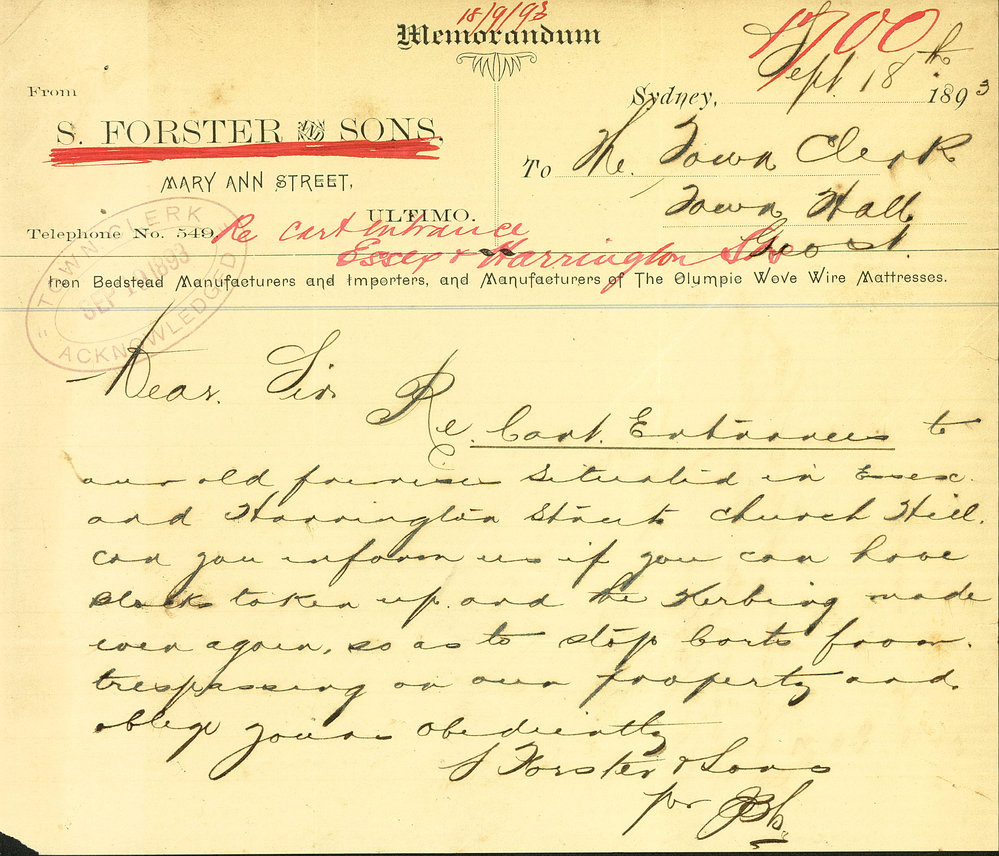 18/9/93
Memorandum
1700
Sept. 18th
Sydney, 1893
From
S. FORSTER AND SONS,
MARY ANN STREET,
ULTIMO.
Telephone No. 549.
To The Town Clerk
Town Hall
Geo St.
Re Cart Entrance
Essex & Harrington Sts
TOWN CLERK
SEP 1893
ACKNOWLEDGED
Iron Bedstead Manufacturers and Importers, and Manufacturers of The Olympic Wove Wire Mattresses.
Dear Sir
Re Cart Entrances to
our old premises situated in Essex
and Harrington Streets Church Hill.
can you inform us if you can have
taken up and the Kerbing made
even again, so as to stop Carts from
trespassing on our property and
oblige yours obediently
S Forster & Sons
per